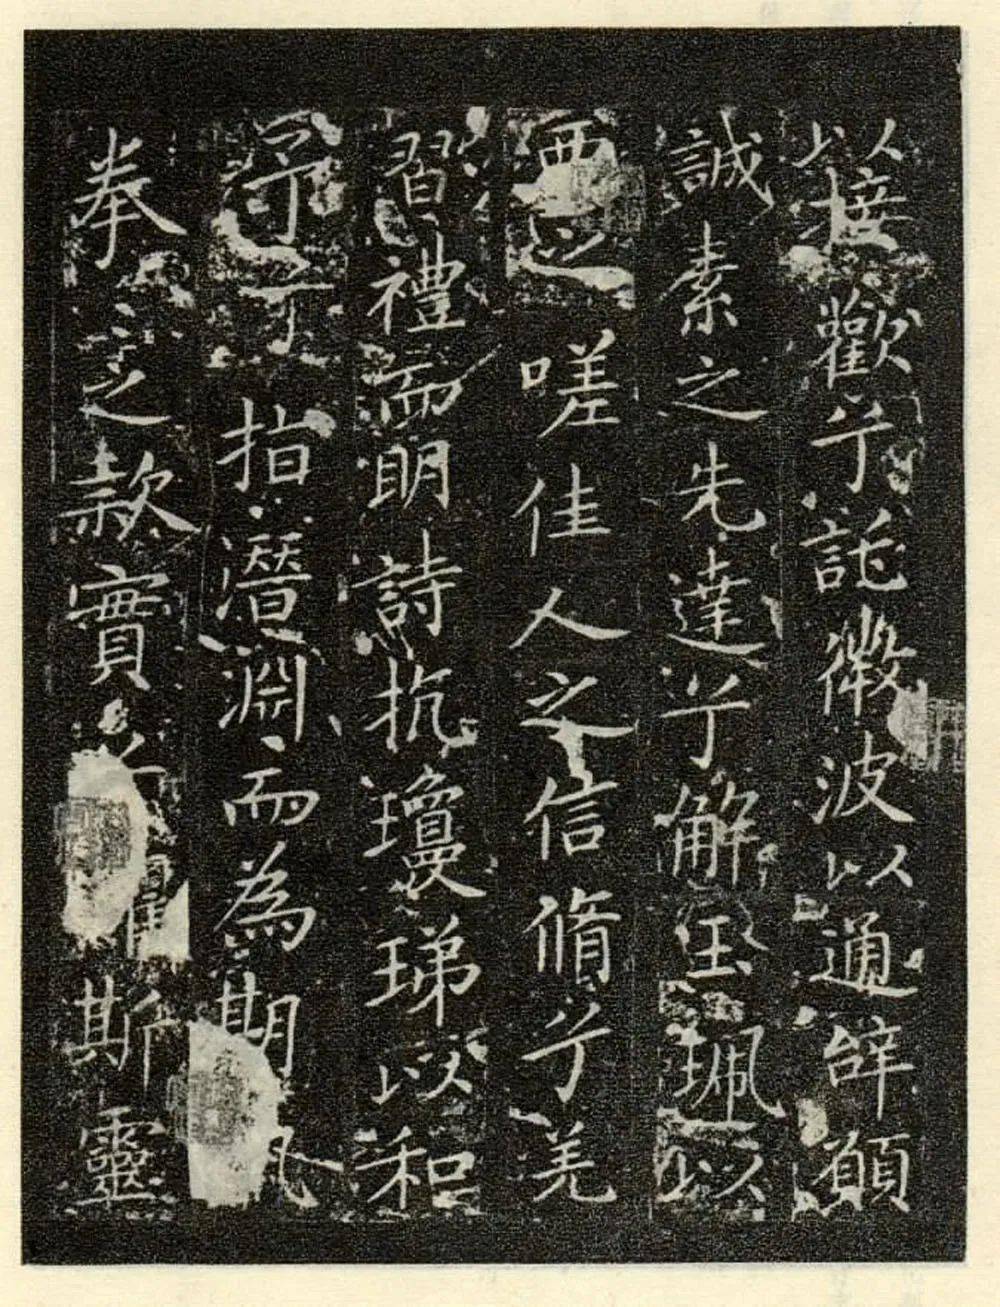 以接歡兮託微波以通辝願
誠素之先達兮解玉珮以
要之嗟佳人之信脩兮羌
習禮而明詩抗瓊珶以和
予兮指潛淵而為期
拳之款實兮懼斯靈